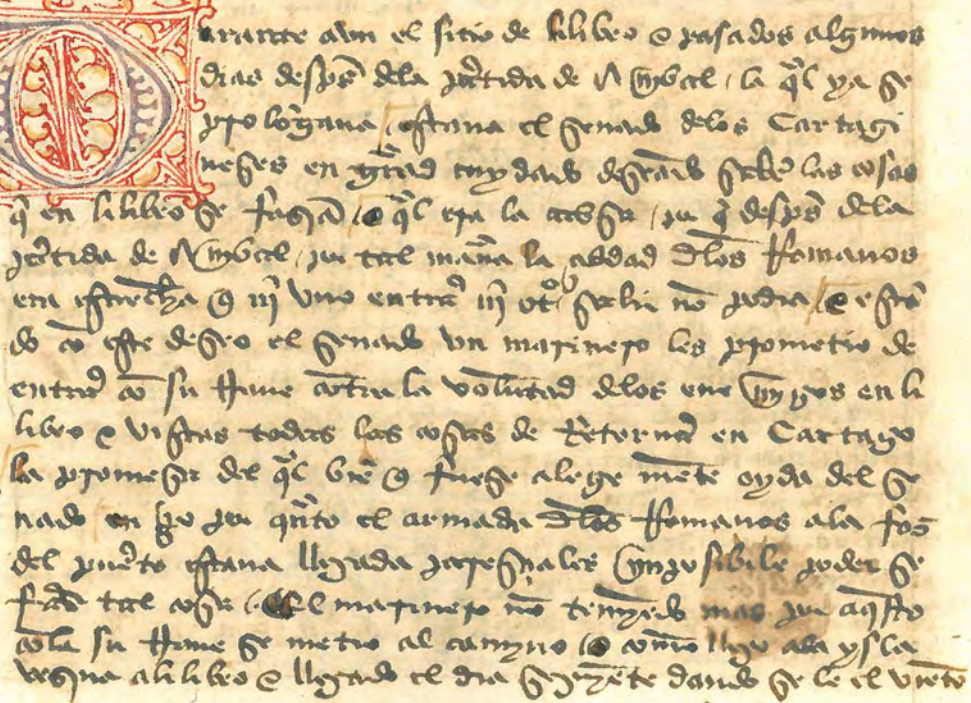 Durante aun el sitio de lilibeo e pasados algunos
dias despꝰ dela ꝑtida de Anibal, la q̃l ya se
prolõgaua, estaua el senado delos Cartagi
neses en grãd cuydado deseãdo saber las cosas
q̃ en lilibeo se fazia, e q̃l era la cabsa, por q̃ despꝰ dela
ꝑtida de Anibal, por tal mãña la cibdad dlos Romanos
era estrecha q̃ nĩ vno entrar nĩ otº salir nõ podia, e estã
do cõ este deseo el senado vn marinero les prometio de
entrar cõ su naue cõtra la volũtad delos enemygos en li
libeo e vistas todas las cosas de Retornar en Cartago
la promesa del q̃l biẽ q̃ fuese alegremẽte oyda del se
nado enpo por quãto el armada dlos Romanos ala foz
del puerto estaua llegada paresçiales ynposibile poder se
fazer tal cosa, El marinero nõ temyẽdo mas por aq̃sto
cõla su naue se metio al camyno e commo llego ala ysla
vezina a lilibeo e llegado el dia siguyẽte dando se le el viẽto